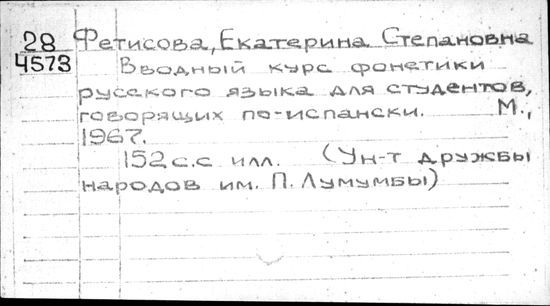 28 Фетисова, Екатерина Степановна
4573 Вводный курс фонетики
русского языка для студентов,
говорящих по-испански. М.,
1967.
152 с. с илл. (Ун-т дружбы
народов им. П. Лумумбы)